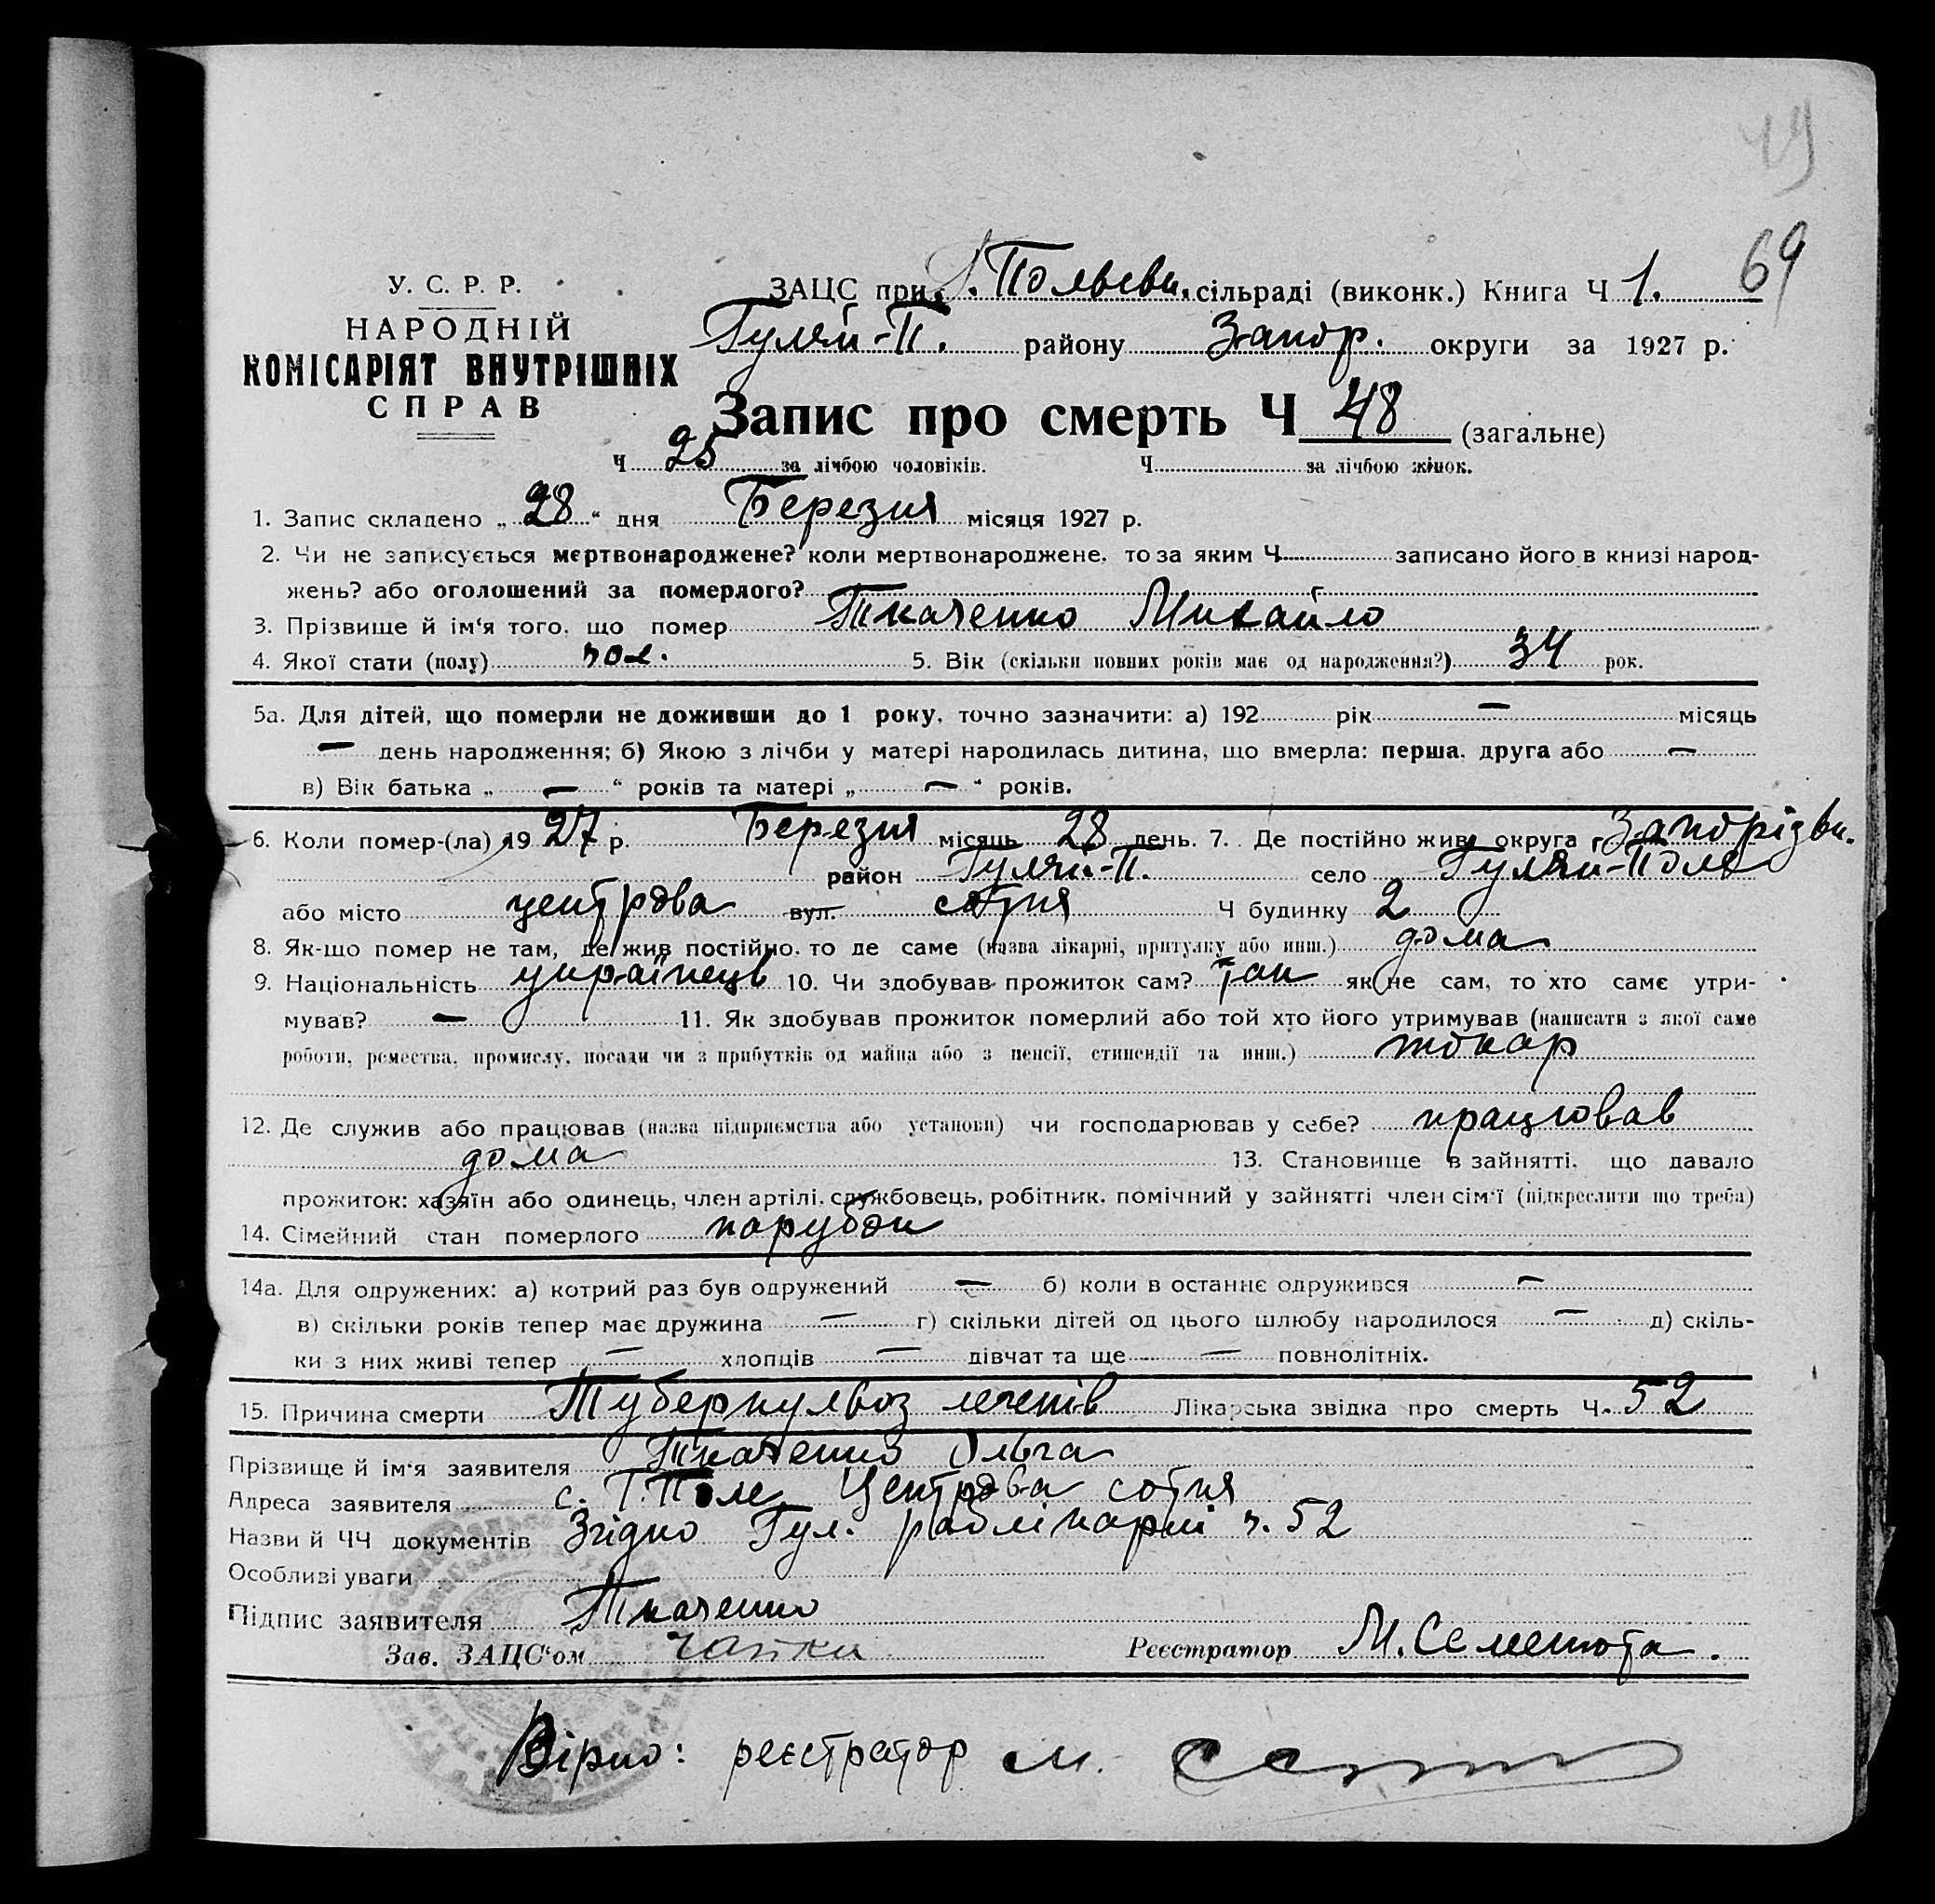 49
69
У. С. Р. Р.
НАРОДНІЙ
КОМІСАРІЯТ ВНУТРІШНІХ
СПРАВ
ЗАЦС при Г. Польськ. сільраді (виконк.) Книга Ч 1.
Гуляй-П. району Запор. округи за 1927 р.
Запис про смерть Ч 48 (загальне)
Ч 25 за лічбою чоловіків. Ч за лічбою жінок.
1. Запис складено „ 28 “ дня Березня місяця 1927 р.
2. Чи не записується мертвонароджене? коли мертвонароджене, то за яким Ч записано його в книзі народ-
жень? або оголошений за померлого?
3. Прізвище й ім‘я того, що помер Ткаченко Михайло
4. Якої стати (полу) чол. 5. Вік (скільки повних років має од народження?) 34 рок.
5а. Для дітей, що померли не доживши до 1 року, точно зазначити: а) 192 рік — місяць
— день народження; б) Якою з лічби у матері народилась дитина, що вмерла: перша, друга або —
в) Вік батька „ — “ років та матері „ — “ років.
6. Коли помер-(ла) 1927 р. Березня місяць 28 день. 7. Де постійно жив, округа Запорізьк.
район Гуляй-П. село Гуляй-Поле
або місто центрова вул. сотня Ч будинку 2
8. Як-що помер не там, де жив постійно, то де саме (назва лікарні, притулку або инш.) дома
9. Національність українець 10. Чи здобував прожиток сам? так як не сам, то хто саме утри-
мував? — 11. Як здобував прожиток померлий або той хто його утримував (написати з якої саме
роботи, ремества, промислу, посади чи з прибутків од майна або з пенсії, стипендії та инш.) токар
12. Де служив або працював (назва підприємства або установи) чи господарював у себе? працював
дома 13. Становище в зайнятті, що давало
прожиток: хазяїн або одинець, член артілі, службовець, робітник, помічний у зайнятті член сім‘ї (підкреслити що треба)
14. Сімейний стан померлого парубок
14а. Для одружених: а) котрий раз був одружений — б) коли в останнє одружився —
в) скільки років тепер має дружина — г) скільки дітей од цього шлюбу народилося — д) скіль-
ки з них живі тепер — хлопців — дівчат та ще — повнолітніх.
15. Причина смерти Туберкульоз легенів Лікарська звідка про смерть Ч. 52
Прізвище й ім‘я заявителя Ткаченко Ольга
Адреса заявителя с. Г. Поле, Центрова сотня
Назви й ЧЧ документів Згідно Гул. райлікарні ч. 52
Особливі уваги
Підпис заявителя Ткаченко
Зав. ЗАЦС‘ом
Реєстратор М. Семенюта.
Вірно: реєстратор М.